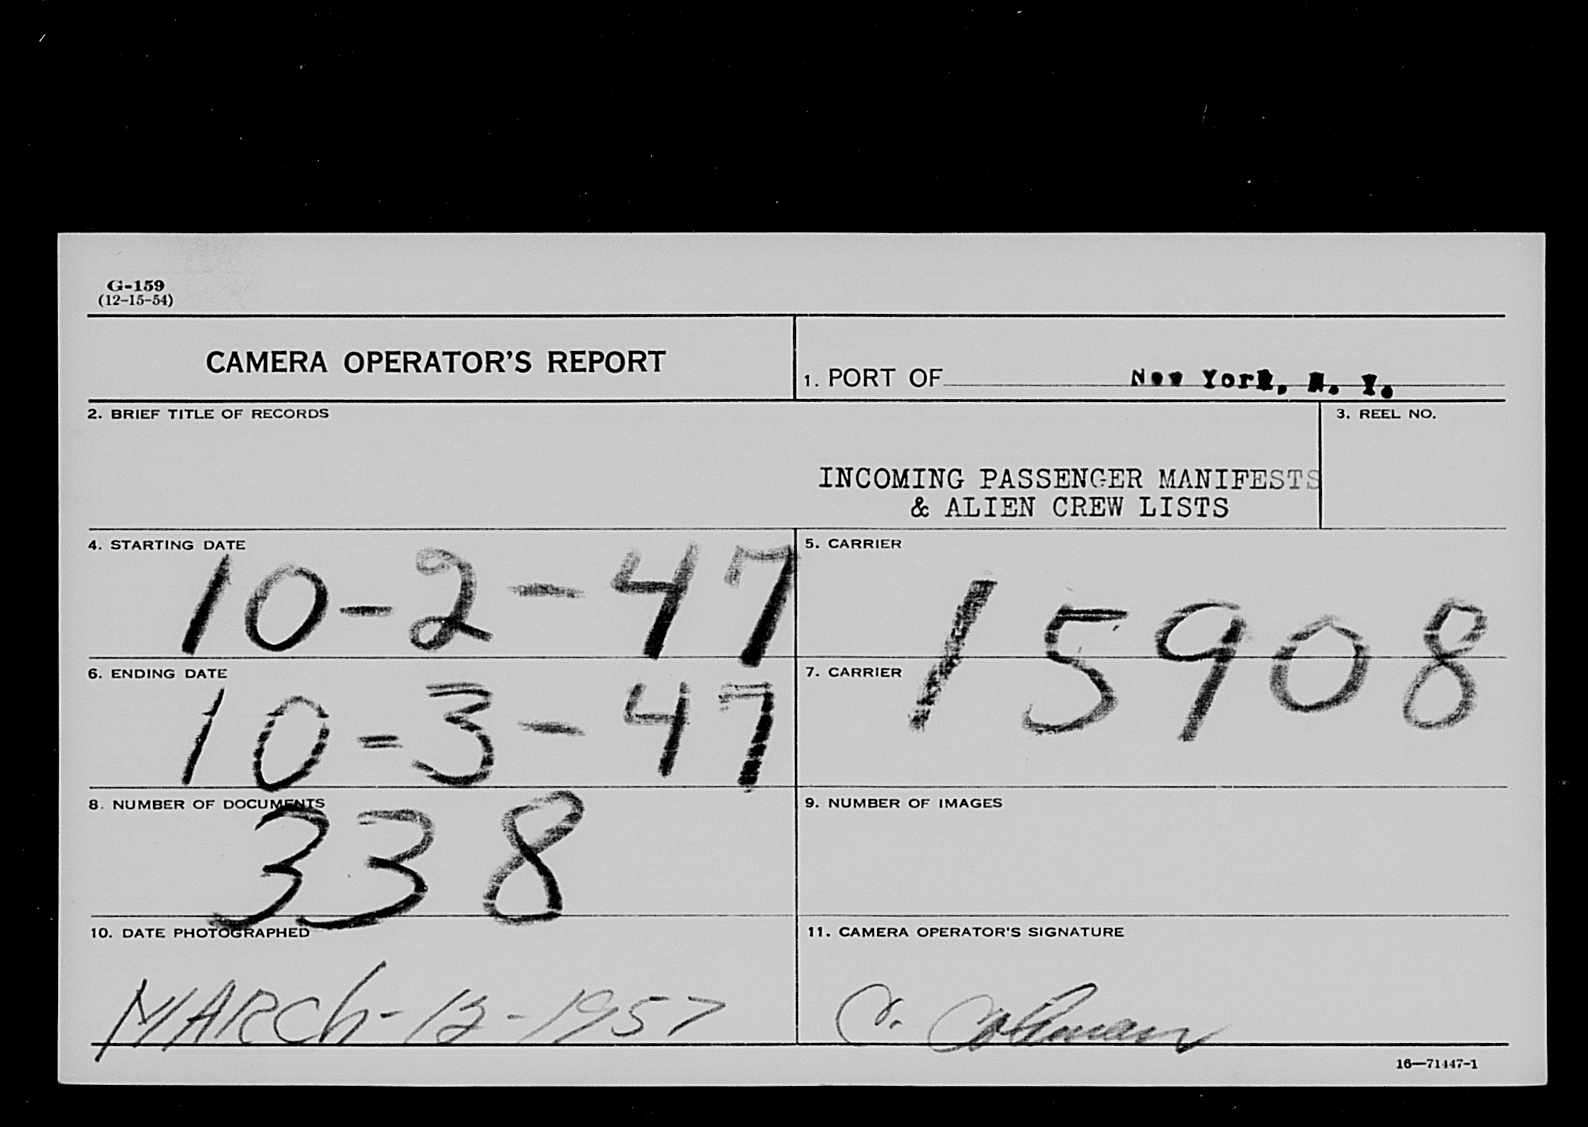 G-159
(12-15-54)
CAMERA OPERATOR'S REPORT
1. PORT OF New York, N. Y.
2. BRIEF TITLE OF RECORDS
3. REEL NO.
INCOMING PASSENGER MANIFESTS
& ALIEN CREW LISTS
4. STARTING DATE
10-2-47
5. CARRIER
15908
6. ENDING DATE
10-3-47
7. CARRIER
8. NUMBER OF DOCUMENTS
338
9. NUMBER OF IMAGES
10. DATE PHOTOGRAPHED
MARCh-12-1957
11. CAMERA OPERATOR'S SIGNATURE
16—71447-1